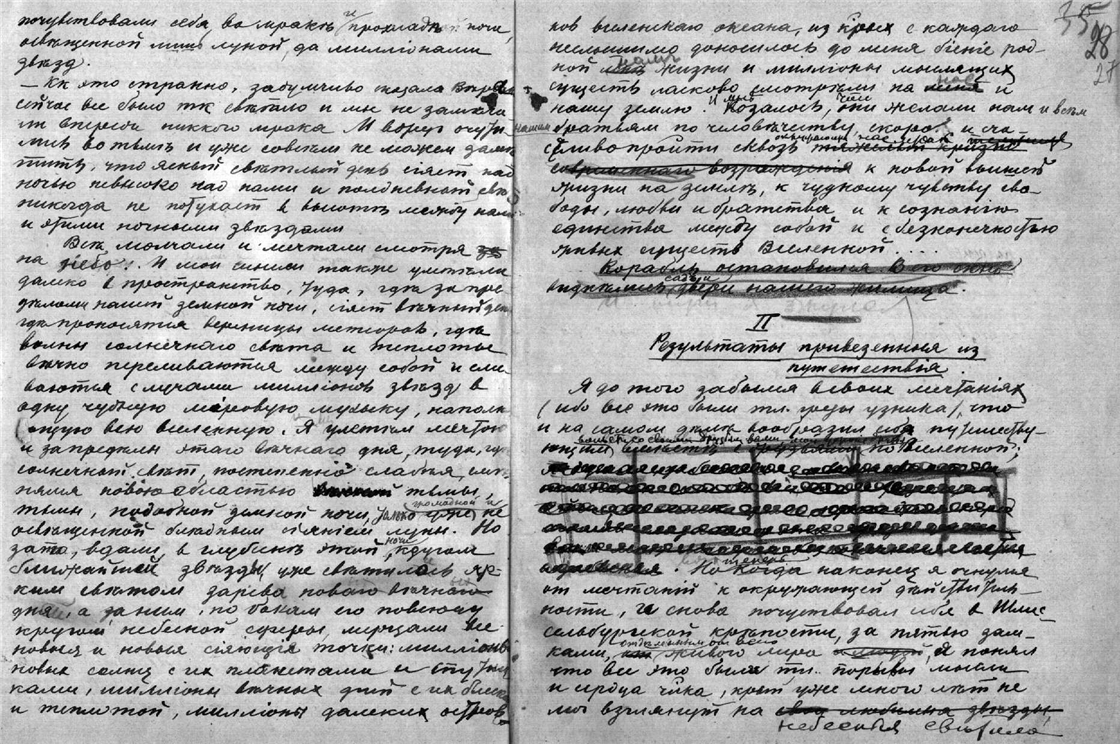 почувствовали себя, во мракѣ и прохладѣ ночи,
освѣщенной лишь луной, да миллiонами
звѣзд.
— Кк это странно, задумчиво сказала Вѣра
сейчас все было тк свѣтло и мы не замѣча
ли впереди никкого мрака И вдруг очути
лись во тьмѣ и уже совсѣм не можем замѣ
тить, что ясный свѣтлый день сiяет над
ночью невысоко над нами и полдневный свѣт
никогда не потухает в высотѣ между нами
и этими ночными звѣздами
Всѣ молчали и мечтали смотря
на небо. И мои мысли также улетѣли
далеко в пространство, туда, гдѣ за пре
дѣлами нашей земной ночи, сiяет вѣчный день
гдѣ проносятся вереницы метеоров, гдѣ
волны солнечнаго свѣта и теплоты
вѣчно переливаются между собой и сли
ваются с лучами миллiонов звѣзд в
одну чудную мiровую музыку, наполн
яющую всю вселенную. Я улетѣл мечтою
и за предѣлы этого вѣчнаго дня, туда, гдѣ
солнечный свѣт, постепенно слабѣя, смѣ
нялся новою областью тьмы,
тьмы, подобной земной ночи, только уже не
освѣщенной блѣдным сiянiем луны. Но
зато, вдали, в глубинѣ этой ночи, кругом
ближайшей звѣзды уже свѣтилось яр
ким свѣтом зарево новаго вѣчнаго
дня, а за ним, по бокам его повсюду
кругом небесной сферы, мерцали все
новыя и новыя сiяющiя точки: миллiоны
новых солнц с их планетами и спутни
ками, миллiоны вѣчных дней с их блеском
и теплотой, миллiоны далеких остров
35
28
ков вселенскаго океана, из крых с каждаго
неслышимо доносилось до меня бiенiе род
ной нам жизни и миллiоны мыслящих
существ ласково смотрѣли на меня и
нашу землю. И мнѣ казалось, они желали нам и всѣм
нашим братьям по человѣчеству скорѣе и сча
стливо пройти сквозь тяжелый кризис
современнаго возрожденiя к новой высшей
жизни на землѣ, к чудному чувству сво
боды, любви и братства и к сознанiю
единства между собой и с безконечностью
живых существ Вселенной ....
Корабль остановился. В его окно
виднѣлись двери нашего жилища.
II
Результаты привезенныя из
путешествiя.
Я до того забылся в своих мечтанiях
(ибо все это были тл. грезы узника), что
и на самом дѣлѣ вообразил себя путешеству
ющим по вселенной;
Но когда наконец я очнулся
от мечтанiй к окружающей дѣйствитель
ности, и снова почувствовал себя в Шлис
сельбургской крѣпости, за пятью зам-
ками, отдѣленным от всего живого мира, я понял
что все это были тл. порывы мысли
и сердца члка, крый уже много лѣт не
мог взглянуть на свои любимыя звѣзды,
небесныя свѣтила